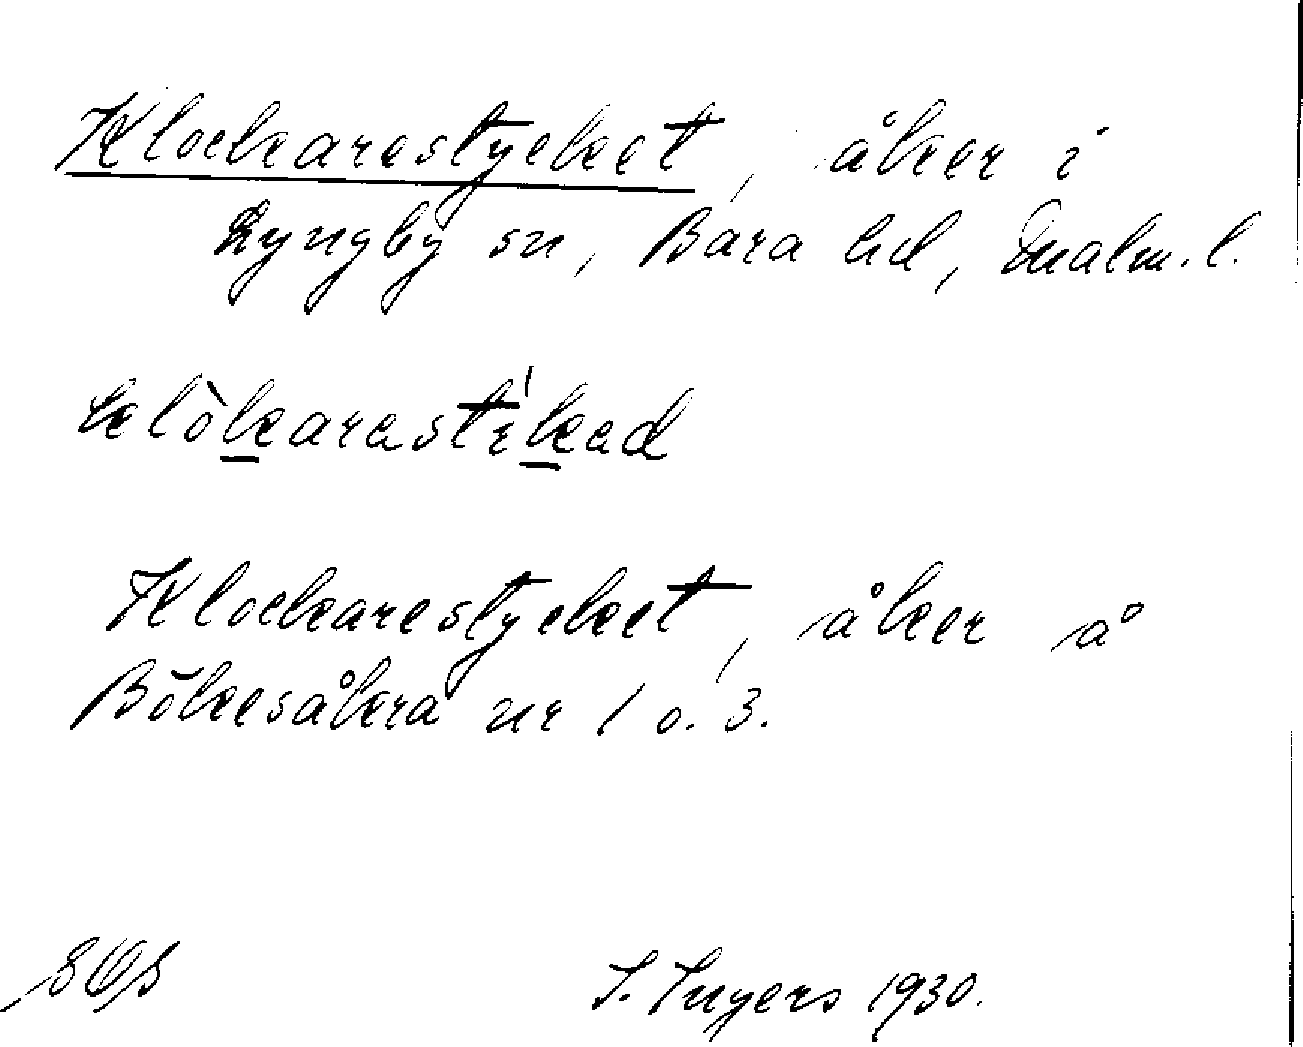 Klockarestycket, åker i
Lyngby sn, Bara hd, Malm. l.
klòkarastíkad
Klockarestycket, åker å
Bökesåkra nr 1 o. 3.
S. Ingers 1930.